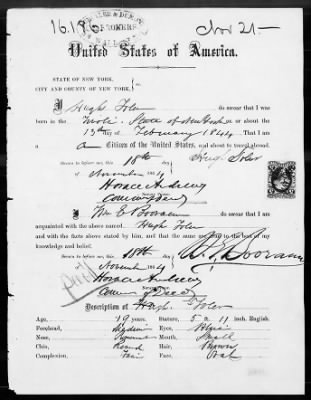 16.196
Nov 21
United States of America.
STATE OF NEW YORK,
CITY AND COUNTY OF NEW YORK,
I Hugh Toler do swear that I was
born in the State of New York on or about the
13th day of February 1844. That I am
a Citizen of the United States, and about to travel abroad.
Sworn to before me, this 18th
November 1864
Horace Andrews
I Wm E do swear that I am
acquainted with the above named Hugh Toler and
with the facts above stated by him, and that the same are true to the best of my
knowledge and belief.
Sworn to before me, this 18th
November 1864
Horace Andrews
Comr of Deeds
Description of Hugh Toler
Age, 19 years. Stature, 5 a 11 inch. English.
Forehead, Medium Eyes,
Nose, Mouth, Small
Chin, Round Hair, Brown
Complexion, Fair Face, Oval